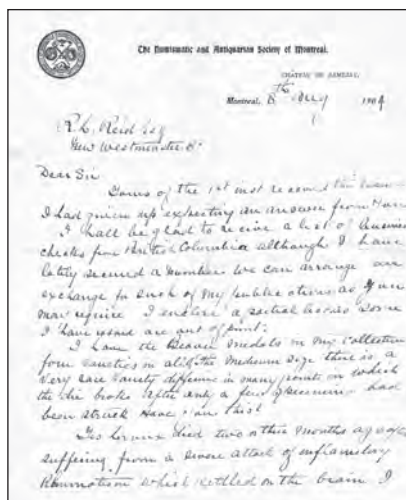 The Numismatic and Antiquarian Society of Montreal.
CHATEAU DE RAMEZAY.
Montreal, 8th Aug 1904
R. L. Reid Esq
New Westminster B.C.
Dear Sir
Yours of the 1st inst received this
I had given up expecting an answer from
I shall be glad to receive a list of
checks from British Columbia although I have
lately secured a number. We can arrange an
exchange for such of my publications as you
may require I enclose a partial list as some
I have issued are out of print.
I have the Beaver medals in my collection
four varieties in all of the medium size there is a
very rare variety differing in many points on which
the die broke after only a few specimens had
been struck Have you this?
Leroux died two or three months ago after
suffering from a severe attack of inflammatory
Rheumatism which settled on the brain I